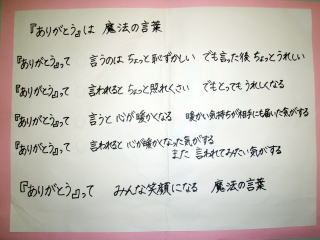 『ありがとう』は 魔法の言葉
『ありがとう』って 言うのは ちょっと 恥ずかしい でも 言った後 ちょっと うれしい
『ありがとう』って 言われると ちょっと 照れくさい でも とっても うれしくなる
『ありがとう』って 言うと 心が暖かくなる 暖かい気持ちが相手にも届いた気がする
『ありがとう』って 言われると 心が暖かくなった 気がする
また 言われてみたい 気がする
『ありがとう』って みんな笑顔になる 魔法の言葉